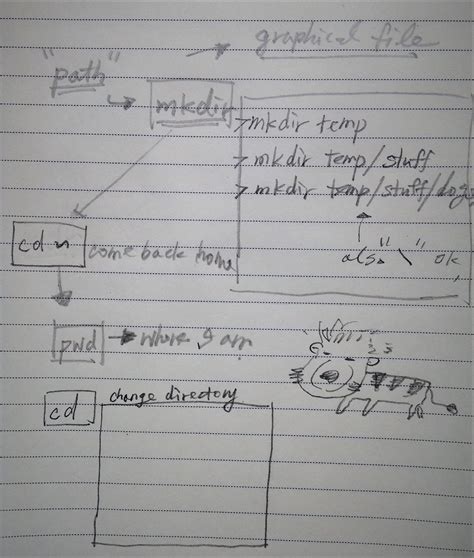 graphical file
"path"
mkdir
> mkdir temp
> mkdir temp/stuff
> mkdir temp/stuff/dog
also "\" ok
cd ~
come back home
pwd
where I am
cd
change directory